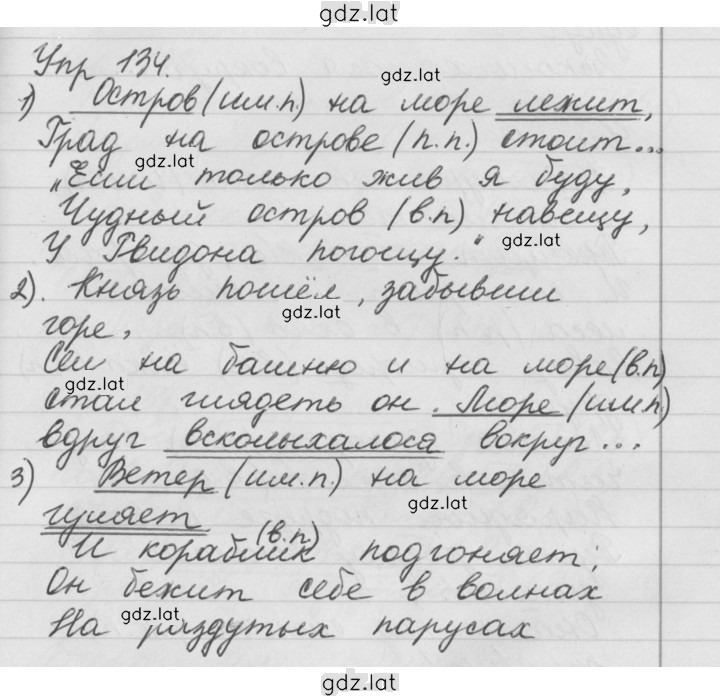 gdz.lat
Упр 134.
gdz.lat
1) Остров (им.п.) на море лежит,
Град на острове (п.п.) стоит...
gdz.lat
„Если только жив я буду,
Чудный остров (в.п) навещу,
У Гвидона погощу."
gdz.lat
2). Князь пошёл, забывши
gdz.lat
горе,
Сел на башню и на море (в.п)
gdz.lat
стал глядеть он. Море (им.п.)
вдруг всколыхалося вокруг...
3) Ветер (им.п.) на море
gdz.lat
гуляет
(в.п)
И кораблик подгоняет;
Он бежит себе в волнах
gdz.lat
На раздутых парусах
gdz.lat